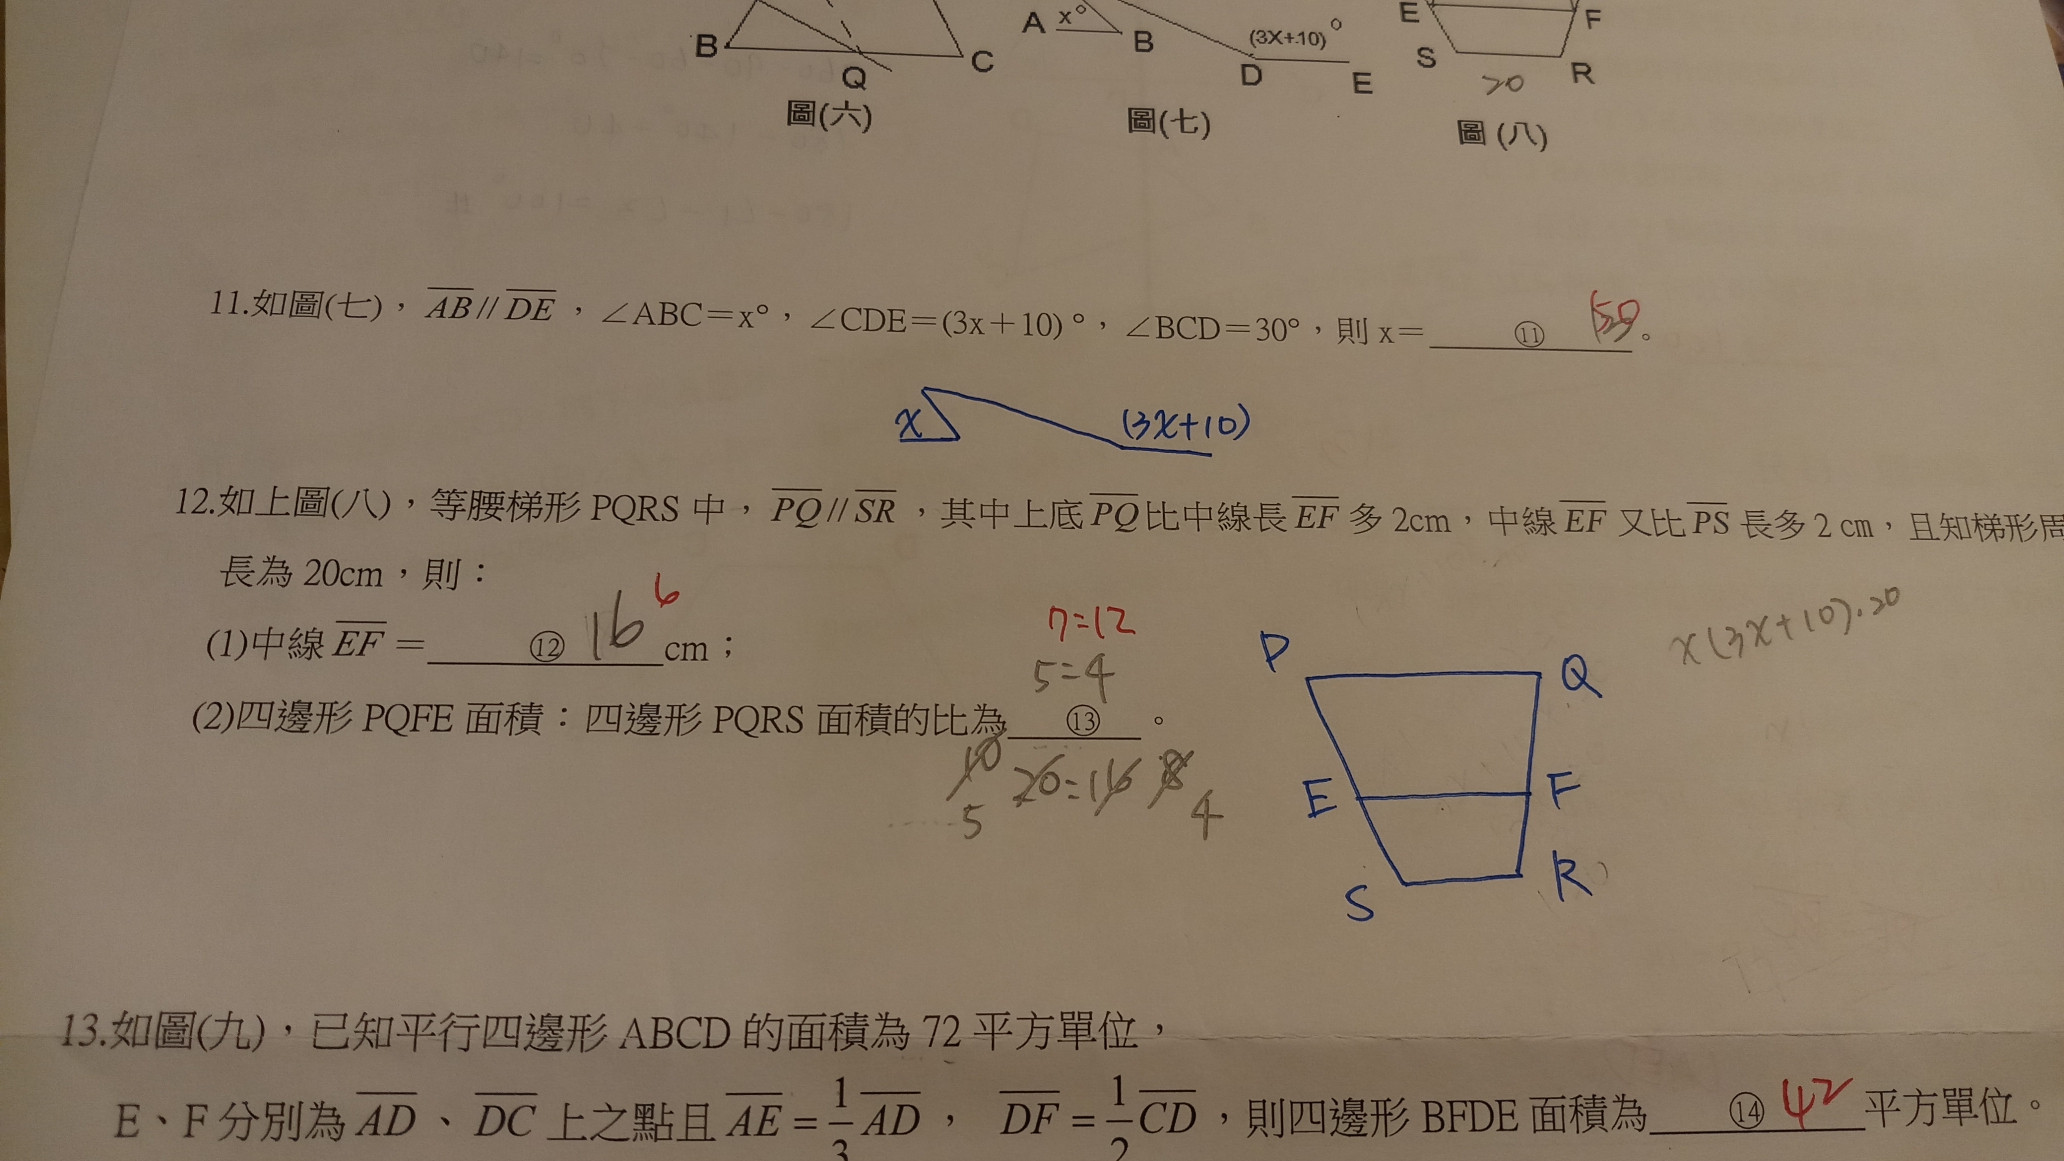 B
Q
C
圖(六)
A x° B (3X+10)° D E
圖(七)
E F
S R
20
圖(八)
11.如圖(七)，AB//DE，∠ABC＝x°，∠CDE＝(3x＋10)°，∠BCD＝30°，則 x＝ ⑪ 。
x (3x+10)
12.如上圖(八)，等腰梯形 PQRS 中，PQ//SR，其中上底PQ比中線長EF多 2cm，中線EF又比PS長多 2 cm，且知梯形周
長為 20cm，則：
(1)中線EF＝ ⑫ 16 6 cm；
7=12
5=4
(2)四邊形 PQFE 面積：四邊形 PQRS 面積的比為 ⑬ 。
10 20=16 8
5 4
P Q
E F
S R
x(3x+10).20
13.如圖(九)，已知平行四邊形 ABCD 的面積為 72 平方單位，
E、F 分別為AD、DC上之點且AE=1/3AD，DF=1/2CD，則四邊形 BFDE 面積為 ⑭ 42 平方單位。